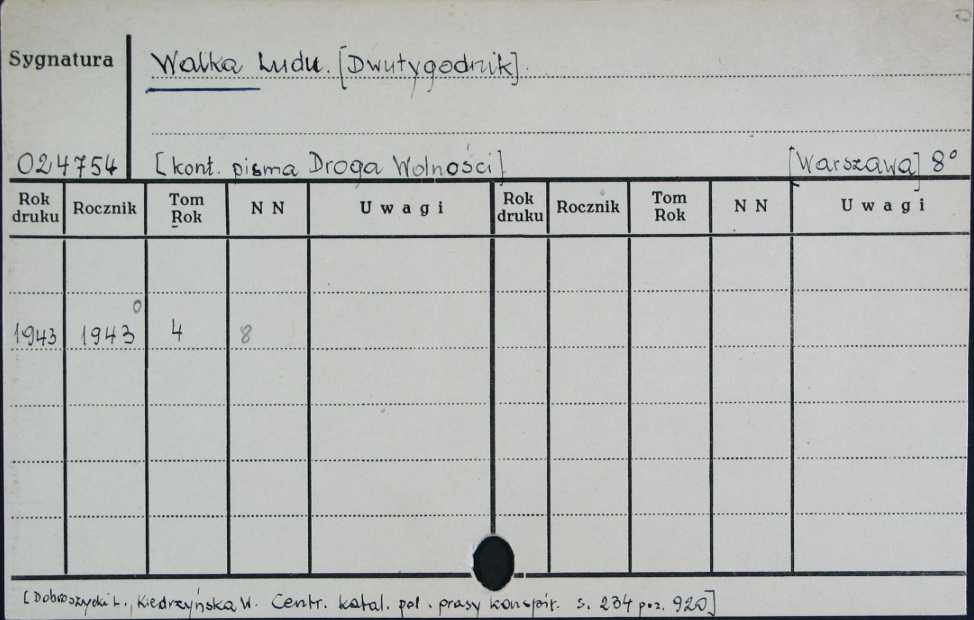 Sygnatura
Walka Ludu. [Dwutygodnik].
024754
[kont. pisma Droga Wolności]
[Warszawa] 8°
Rok druku Rocznik Tom Rok N N Uwagi Rok druku Rocznik Tom Rok N N Uwagi
0
1943 1943 4 8
[Dobroszycki L., Kiedrzyńska W. Centr. katal. pol. prasy konspir. s. 234 poz. 920]